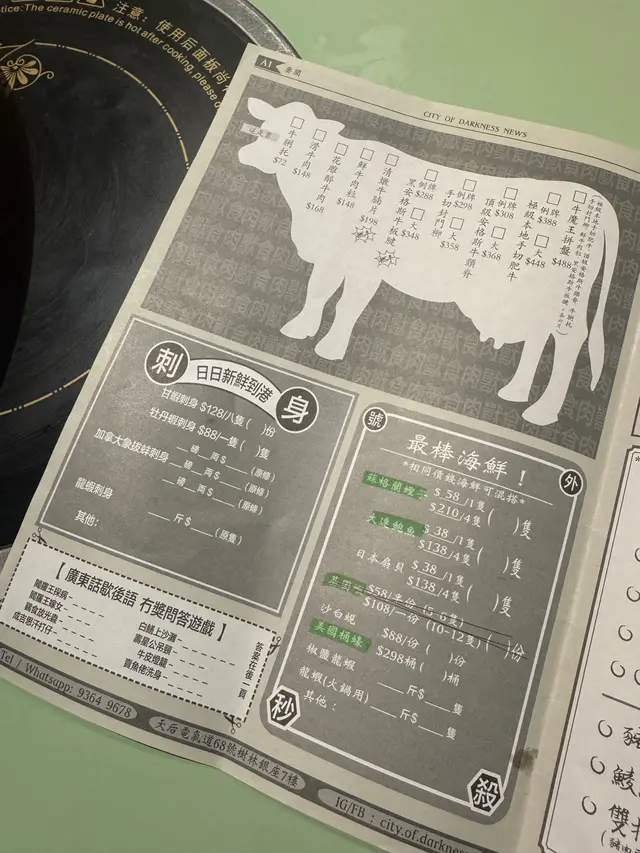 注意：使用后面板尚
tice:The ceramic plate is hot after cooking, please
A1 要聞
CITY OF DARKNESS NEWS
□牛脷托 $72
□滑牛肉 $148
□花雕醉牛肉 $168
□鮮牛肉粒 $148
□清燉牛腩片 $198
黑安格斯牛板腱 □例牌 $288 □大 $348
手切封門柳 □例牌 $298 □大 $358
頂級安格斯牛頸脊 □例牌 $308 □大 $368
極級本地手切肥牛 □例牌 $388 □大 $448
□牛魔王拼盤 $488
刺身
日日新鮮到港
甘蝦刺身 $128/八隻 ( )份
牡丹蝦刺身 $88/一隻 ( )隻
加拿大象拔蚌刺身 __磅__兩$____(原條)
__磅__兩$____(原條)
__磅__兩$____(原條)
龍蝦刺身 ____斤$____(原隻)
其他:
【 廣東話歇後語 冇獎問答遊戲 】
閻羅王探病：- - -
閻羅王嫁女：- - -
成吉思汗打仔：- - -
白鱔上沙灘：- - - -
壽星公吊頸：- - - -
牛皮燈籠：- - - -
賣魚佬洗身：- - - -
答案在後一頁
號外
最棒海鮮！
*相同價錢海鮮可混搭*
蘇格蘭蟶子 $ 58 /1隻 ( )隻
$210/4隻
大連鮑魚 $ 38 /1隻 ( )隻
$138/4隻
日本扇貝 $ 38 /1隻 ( )隻
$138/4隻
$58/半份 (5-6隻)
$108/一份 (10-12隻) ( )份
沙白蜆 $88/份 ( )份
美國桶蠔 $298桶 ( )桶
椒鹽龍蝦 ____斤$____隻
龍蝦(火鍋用) ____斤$____隻
其他：
秒殺
Tel / Whatsapp: 9364 9678
天后電氣道68號樹林銀座7樓
IG/FB : city.of.darkness
豬
鯪
雙